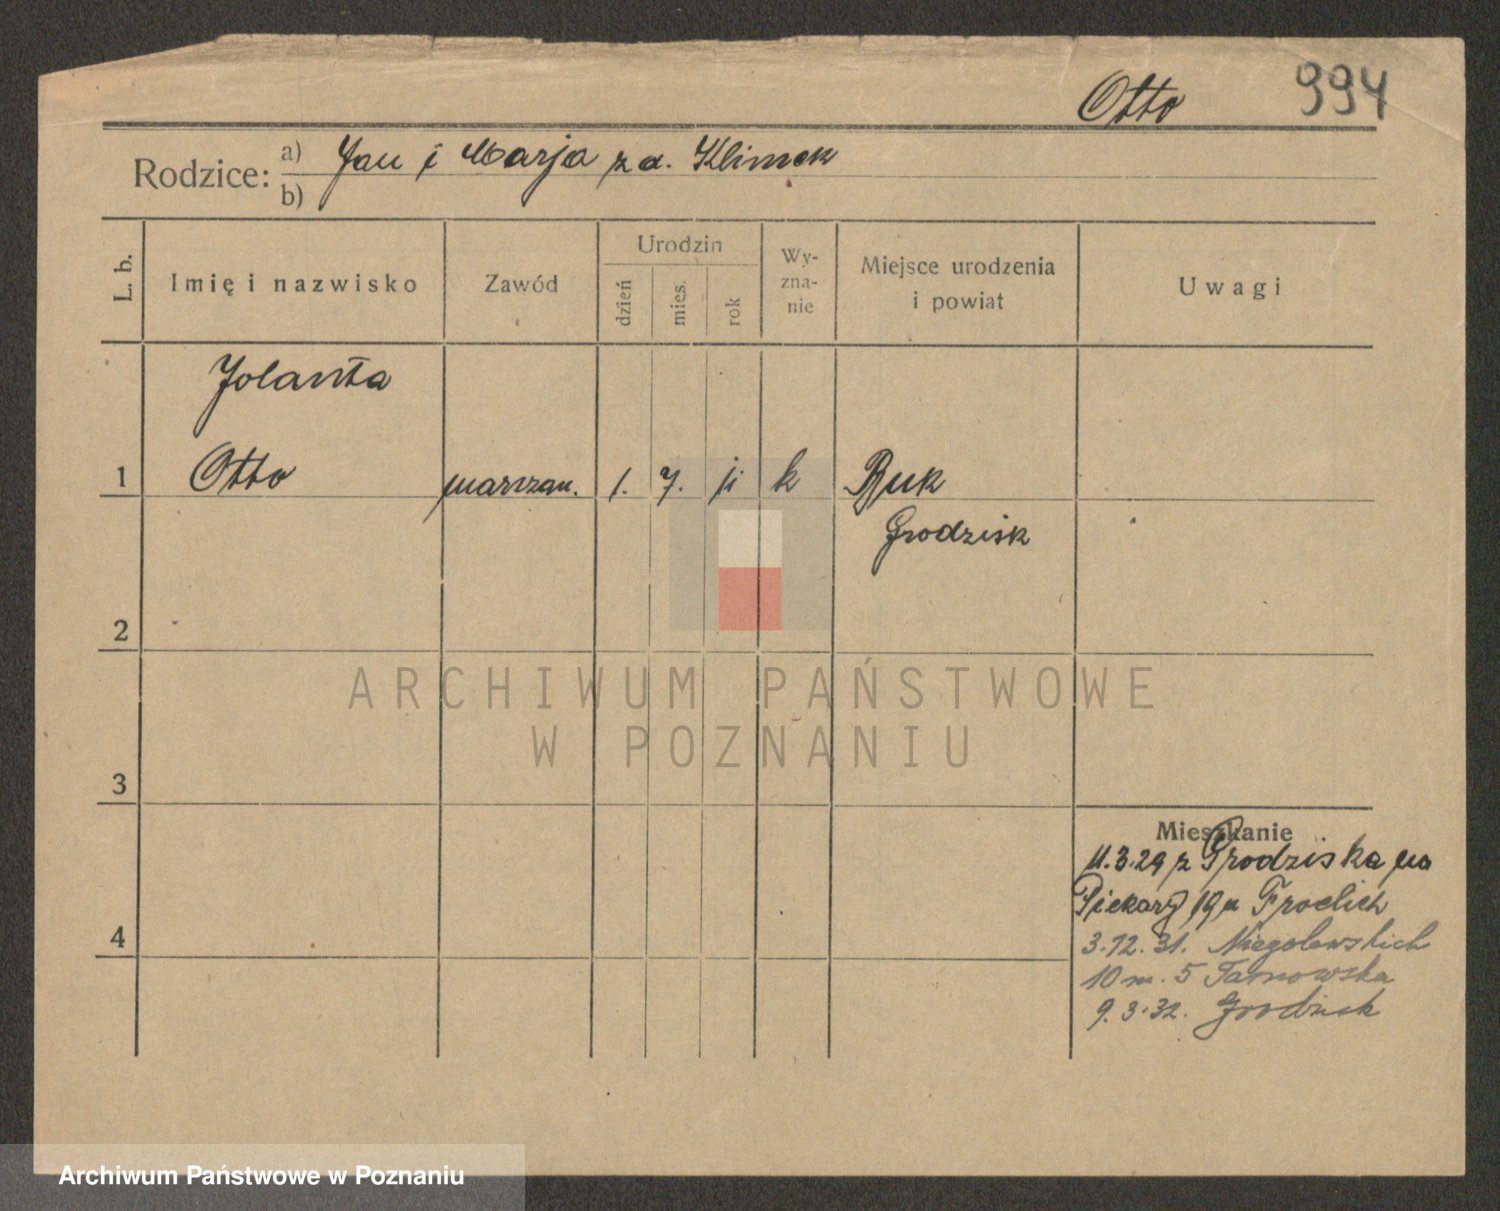 Otto 994
Rodzice: a) Jan i Marja z d. Klimek
b)
L. b.
Imię i nazwisko
Zawód
Urodzin
dzień
mies.
rok
Wy-
zna-
nie
Miejsce urodzenia
i powiat
Uwagi
Jolanta
1 Otto 1. 7. k Buk
Grodzisk
2
3
4
Mieszkanie
11.3.29 z Grodziska na
Piekary 19 u Froelich
3.12.31. Niegolewskich
10 m. 5 Tarnowska
9.3.32. Grodzisk
ARCHIWUM PAŃSTWOWE
W POZNANIU
Archiwum Państwowe w Poznaniu